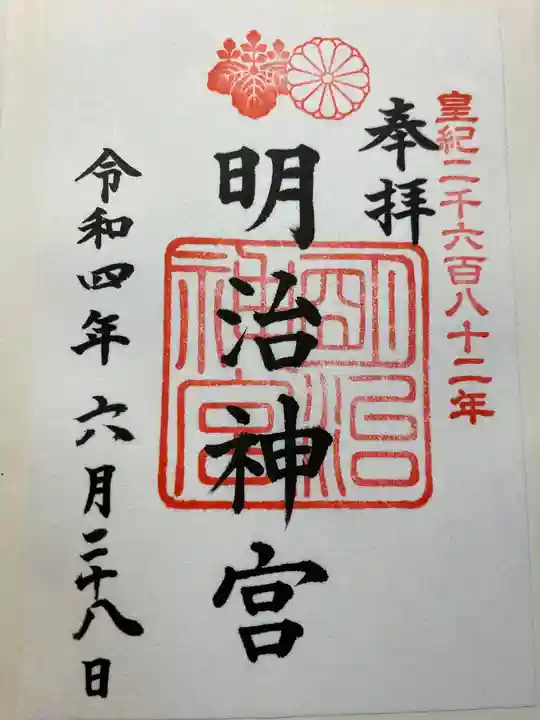 皇紀二千六百八十二年
奉拝
明治神宮
明治神宮
令和四年六月二十八日